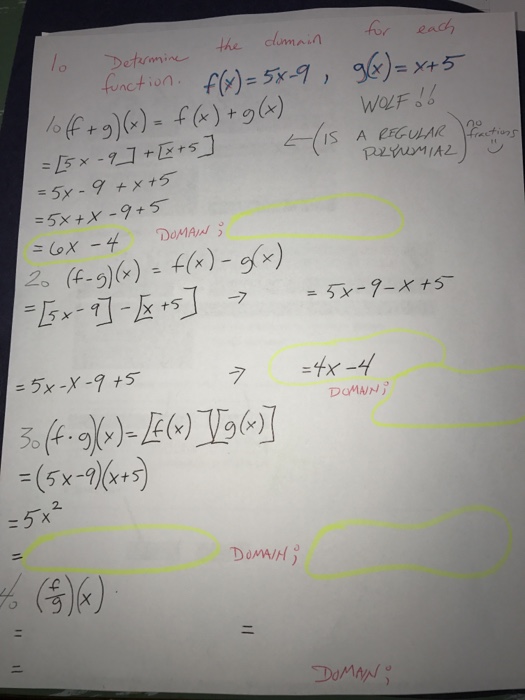 1. Determine the domain for each
function. f(x) = 5x-9, g(x) = x+5
WOLF !!
1. (f+g)(x) = f(x) + g(x)
= [5x - 9] + [x+5] ← (IS A REGULAR POLYNOMIAL) no fractions
= 5x - 9 + x + 5
= 5x + x - 9 + 5
= 6x - 4 DOMAIN;
2. (f-g)(x) = f(x) - g(x)
= [5x - 9] - [x + 5] → = 5x - 9 - x + 5
= 5x - x - 9 + 5 → = 4x - 4
DOMAIN;
3. (f·g)(x) = [f(x)][g(x)]
= (5x-9)(x+5)
= 5x²
= DOMAIN;
4. (f/g)(x)
= =
= DOMAIN;